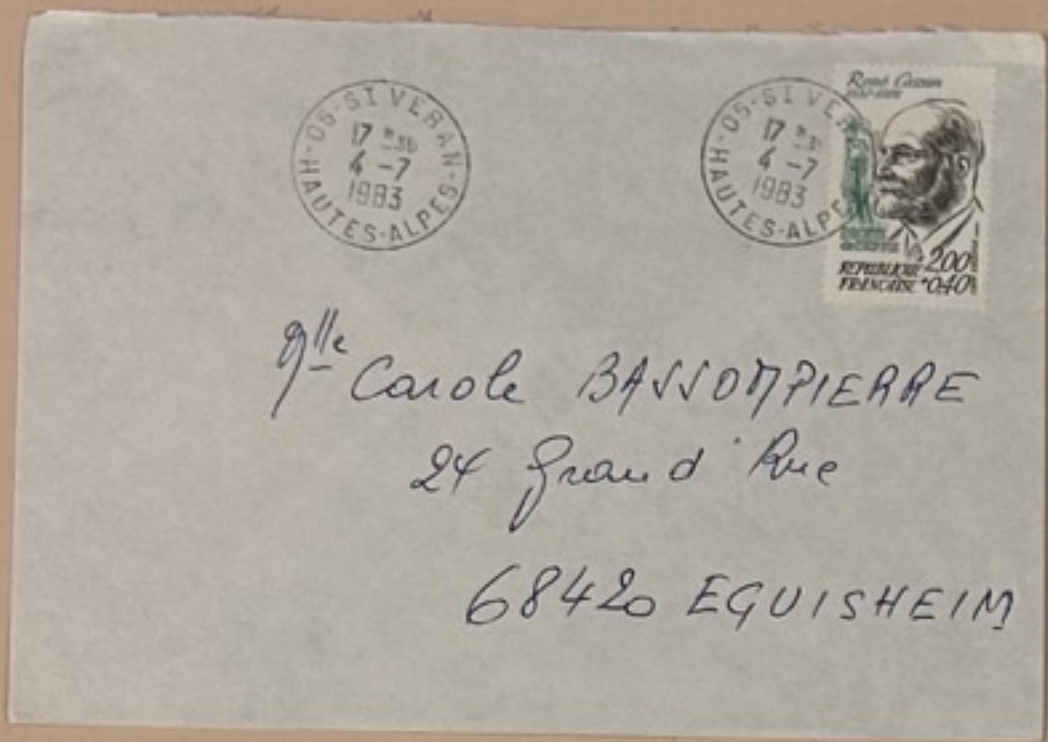 05-ST VERAN
17 H30
4 -7
1983
HAUTES-ALPES
05-ST VERAN
17 H30
4 -7
1983
HAUTES-ALPES
René Cassin
REPUBLIQUE 2,00
FRANÇAISE +0,40
Mlle Carole BASSOMPIERRE
24 Grand' Rue
68420 EGUISHEIM